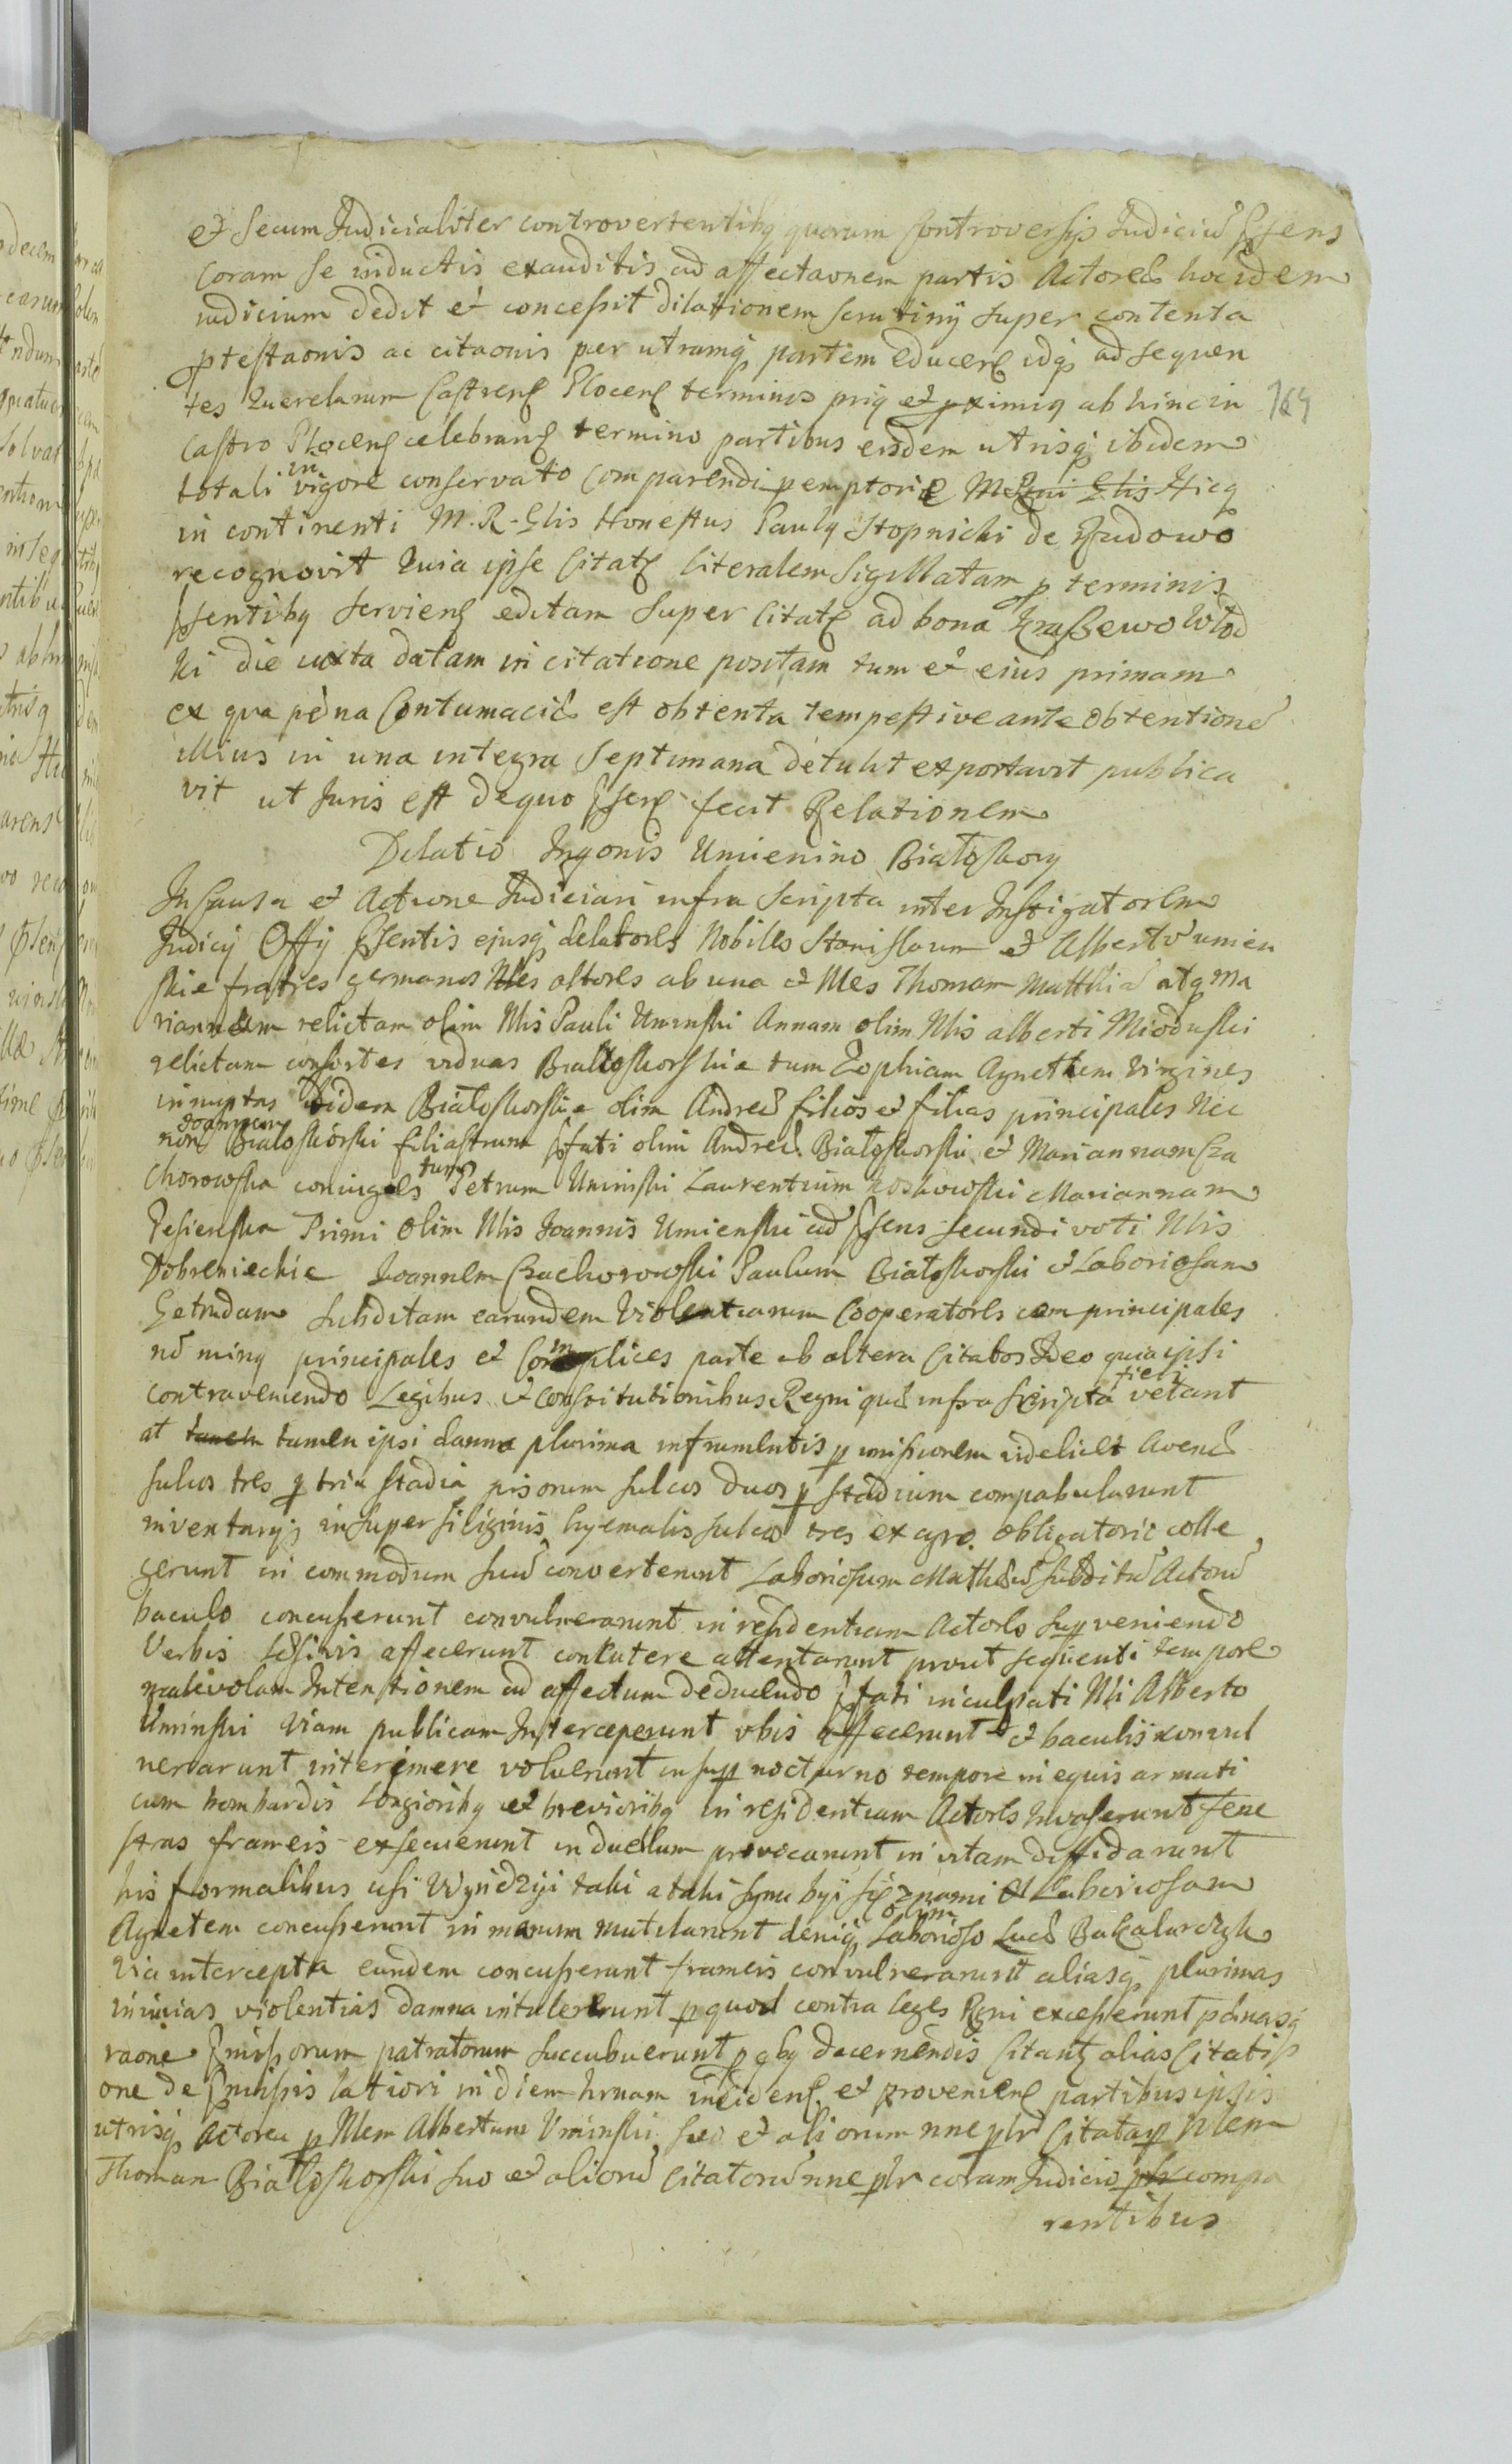 et Secum Judicialiter controvertentibq quorum Controversijs Judiciu Psens
coram se inductis exauditis ad affectaonem partis Actoreæ hocidem
iudicium dedit et concessit dilationem scrutinij super contenta
ptestaonis ac citaonis per utramq partem educen idq ad sequen
tes Querelarum Castren Plocen terminos priq et pximiq ab hinc in
Castro Plocen celebran termino partibus eisdem utrisq ibidem
in
totali vigore conservato comparendi pemptorie M Regni Glis Hicq
in continenti M. R. Glis Honestus Paulq Stopnicki de Rudowo
recognovit Quia ipse Citat literalem Sigillatam p terminis
Psentibq servien editam super Citat ad bona Kraszewo Wlod
ki die iuxta datam in citatione positam tum et eius primam
ex qua pæna Contumaciæ est obtenta tempestive ante obtentione
illius in una integra Septimana detulit exportavit publica
vit ut Juris est de quo Psen fecit Relationem
Dilatio Inqonis Umienino Białoskory
In Causa et Actione Judiciari infra scripta inter Instigatorem
Judicij Offij Psentis ejusq delatores Nobiles Stanislaum et Albertu umien
skie fratres germanos Nles actores ab una et Nles Thomam Matthia atq Ma
riannam relictam olim Nlis Pauli Uminski Annam olim Nlis alberti Mioduski
relictam consortes viduas Białoskorskie tum Zophiam Agnethem Virgines
innuptas ibidem Białoskorskie olim Andreæ filios et filias principales Nec
Joannem
non Białoskórski filiastrum Pfati olim Andreæ Białoskorski et Mariannam Cza
tum
chorowska coniuges Petrum Uminski Laurentium Koskowski Mariannam
Pesienska Primi olim Nlis Joannis Umienski ad Psens secundi voti Nlis
Dobrenieckie Joannem Czachorowski Paulum Białoskorski et Laboriosam
Getrudam subditam earundem Violentiarum Cooperatores cum principales
nō minq principales et Complices parte ab altera Citatos Ideo quia ipsi
fieri
contraveniendo Legibus et constitutionibus Regni quæ infra scripta vetant
at tamen tamen ipsi damna plurima in frumentis p missionem videlicet Avenæ
sulcos tres p tria stadia pisorum sulcos duos p stadium compabularunt
inventarijs insuper siliginis hyemalis sulcos tres ex agro obligatorie colle
gerunt in commodum suu converterunt Laboriosum Mathæu subditu Actoru
baculo concusserunt convulnerarunt in residentiam Actores supveniendo
Verbis læsivis affecerunt concutere attentarunt prout sequenti tempore
malevolam Intentionem ad effectum deducendo Pfati inculpati Nli Alberto
Uminski Viam publicam Interceperunt vbis affecerunt et baculis convul
nerarunt interimere voluerunt insup nocturno tempore in equis armati
cum bombardis longioribq et brevioribq in residentiam Actores Invaserunt fene
stras frameis exsecuerunt in duellum provocarunt in vitam diffidarunt
his formalibus usi Wynidziyi taki a taki synu byi się z nami Et Laboriosam
olim
Agnetem concusserunt in manum mutilarunt deniq Laborioso Lucæ Bakalarczyk
Via intercepta eundem concusserunt frameis convulnerarunt aliasq plurimas
iniurias violentias damna intulererunt p quod contra leges Rgni excesserunt pænasq
raone Pmissorum patratorum succubuerunt p qbq decernendis Citant alias Citatis
one de Pmissis latiori in diem hrnam inciden et provenien partibus ipsis
utrisq Actorea p Nlem Albertum Uminski suo et aliorum nne plr Citata p Nlem
Thomam Białoskorski suo et alioru Citatoru nne plr coram Judicio plr compa
rentibus
169